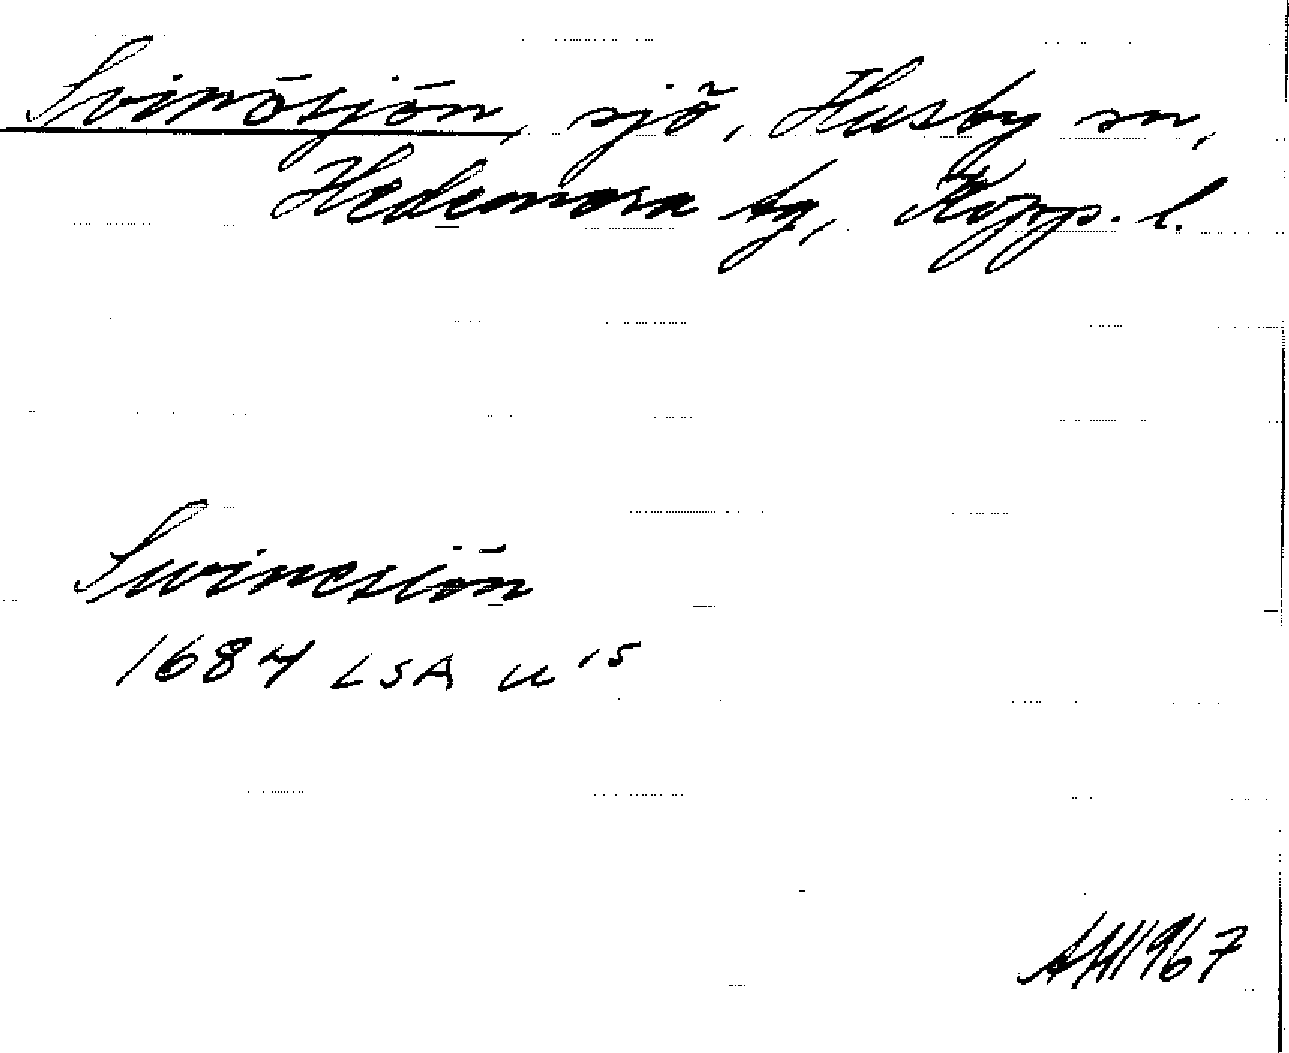 Svinösjön, sjö, Husby sn,
Hedemora tg, Kopp. l.
Swinesiön
1684 LSA U 15
AH 1967